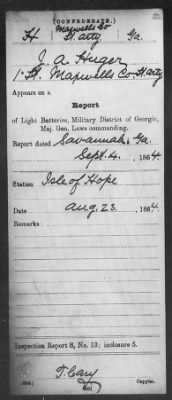 (CONFEDERATE.)
Maxwells Co
H | L't Arty | Ga.
J. A. Huger
1" Lt. Maxwells Co L't Arty
Appears on a
Report
of Light Batteries, Military District of Georgia,
Maj. Gen. Laws commanding.
Report dated Savannah, Ga.
Sept. 4, 1864.
Station Isle of Hope
Date Aug. 23, 1864.
Remarks
Inspection Report 8, No. 13; inclosure 5.
T. Cary
Copyist.